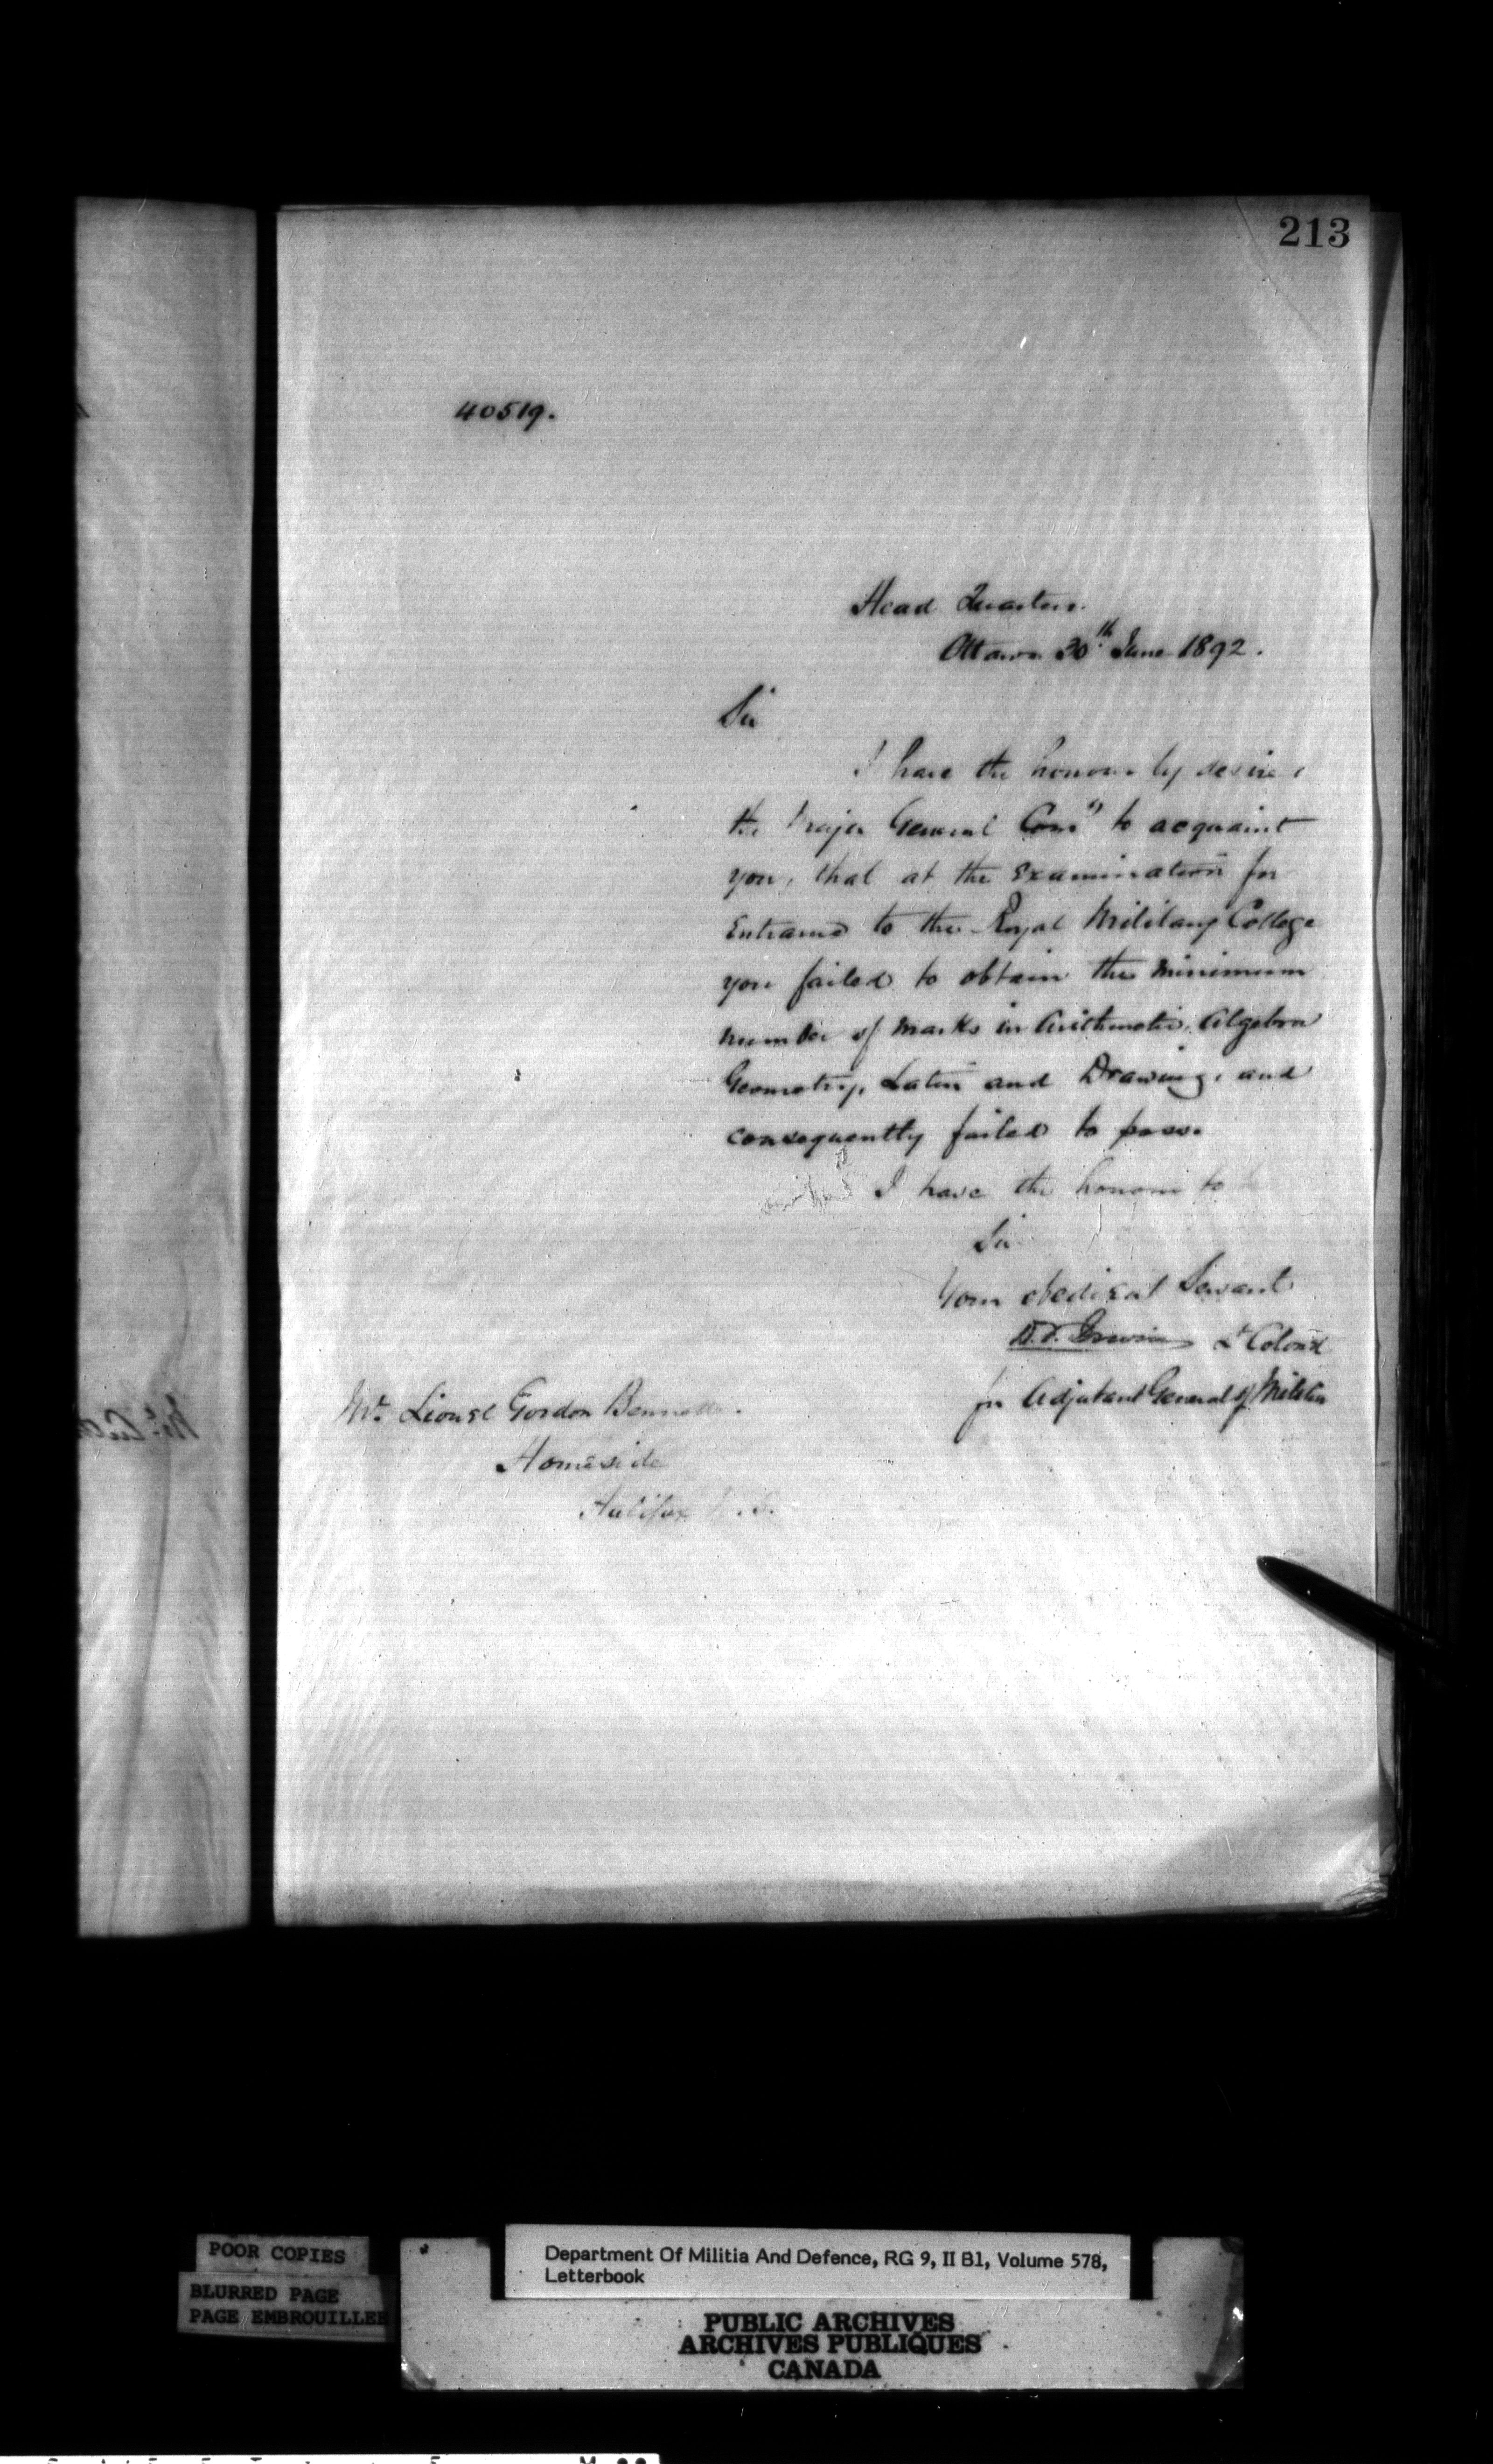 213
40519.
Head Quarters.
Ottawa 30th June 1892.
Sir
I have the honour by desire
the Major General Comg to acquaint
you, that at the Examination for
Entrance to the Royal Military College
you failed to obtain the minimum
number of marks in Arithmetic, Algebra
Geometry, Latin and Drawing, and
consequently failed to pass.
I have the honour to
Sir
Your obedient Servant
D.T. Irwin Lt Colonel
for Adjutant General of Militia
Mr. Lionel Gordon Bennett.
Homeside
Halifax N.S.
POOR COPIES
BLURRED PAGE
PAGE EMBROUILLEE
Department Of Militia And Defence, RG 9, II B1, Volume 578,
Letterbook
PUBLIC ARCHIVES
ARCHIVES PUBLIQUES
CANADA